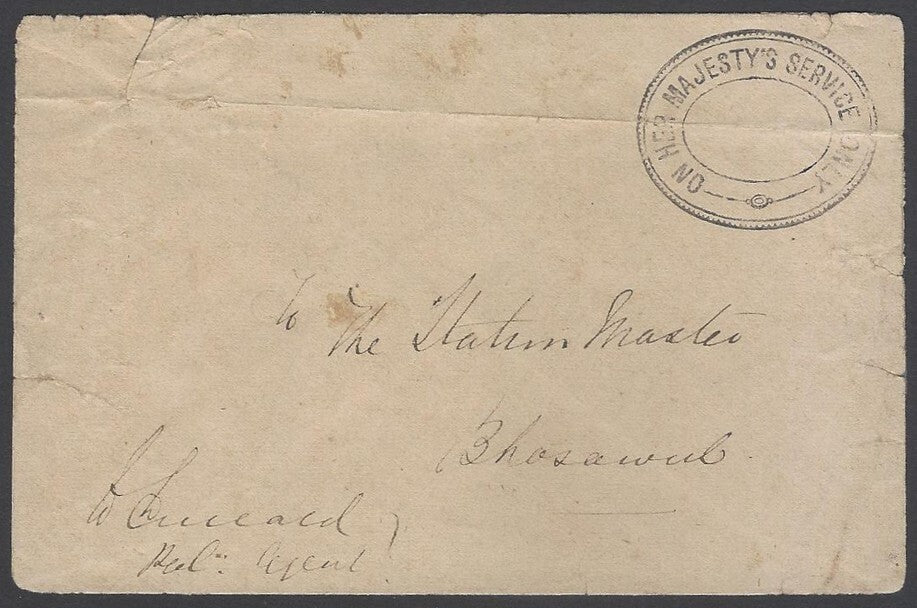 ON HER MAJESTY'S SERVICE ONLY
to
The Station Master
Bhosawul.
Agent